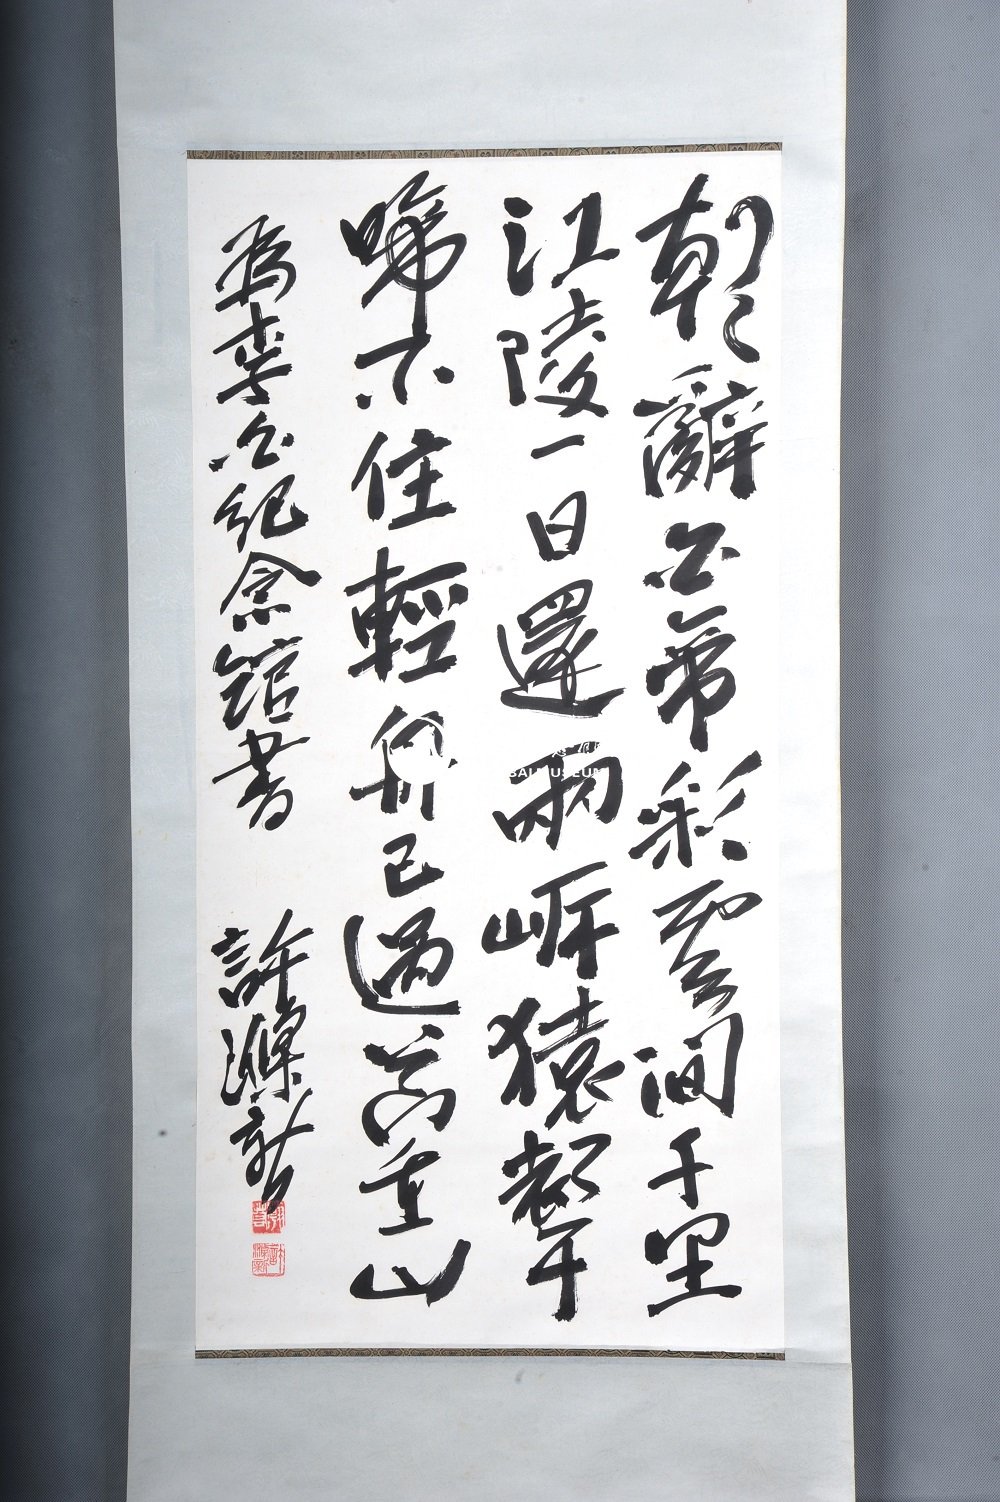 朝辭白帝彩雲間千里
江陵一日還兩岸猿聲
啼不住輕舟已過萬重山
為李白紀念館書 許滌新
BAI MUSEUM